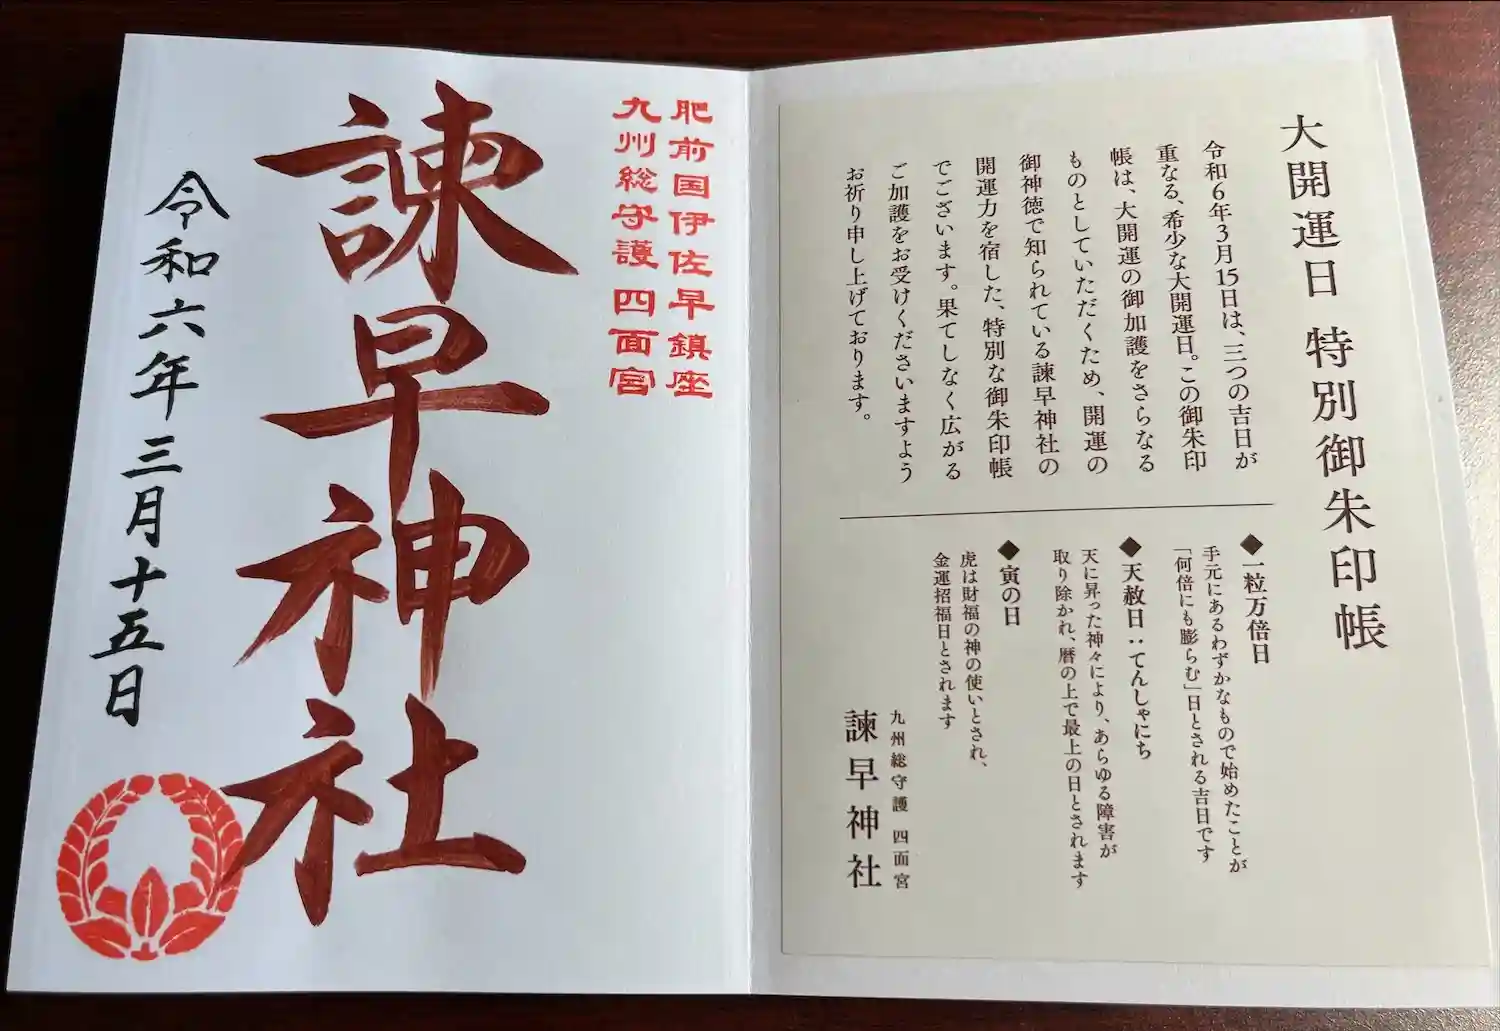 大開運日 特別御朱印帳
令和6年3月15日は、三つの吉日が
重なる、希少な大開運日。この御朱印
帳は、大開運の御加護をさらなる
ものとしていただくため、開運の
御神徳で知られている諫早神社の
開運力を宿した、特別な御朱印帳
でございます。果てしなく広がる
ご加護をお受けくださいますよう
お祈り申し上げております。
◆一粒万倍日
手元にあるわずかなもので始めたことが
「何倍にも膨らむ」日とされる吉日です
◆天赦日：てんしゃにち
天に昇った神々により、あらゆる障害が
取り除かれ、暦の上で最上の日とされます
◆寅の日
虎は財福の神の使いとされ、
金運招福日とされます
九州総守護 四面宮
諫早神社
肥前国伊佐早鎮座
九州総守護 四面宮
諫早神社
令和六年三月十五日